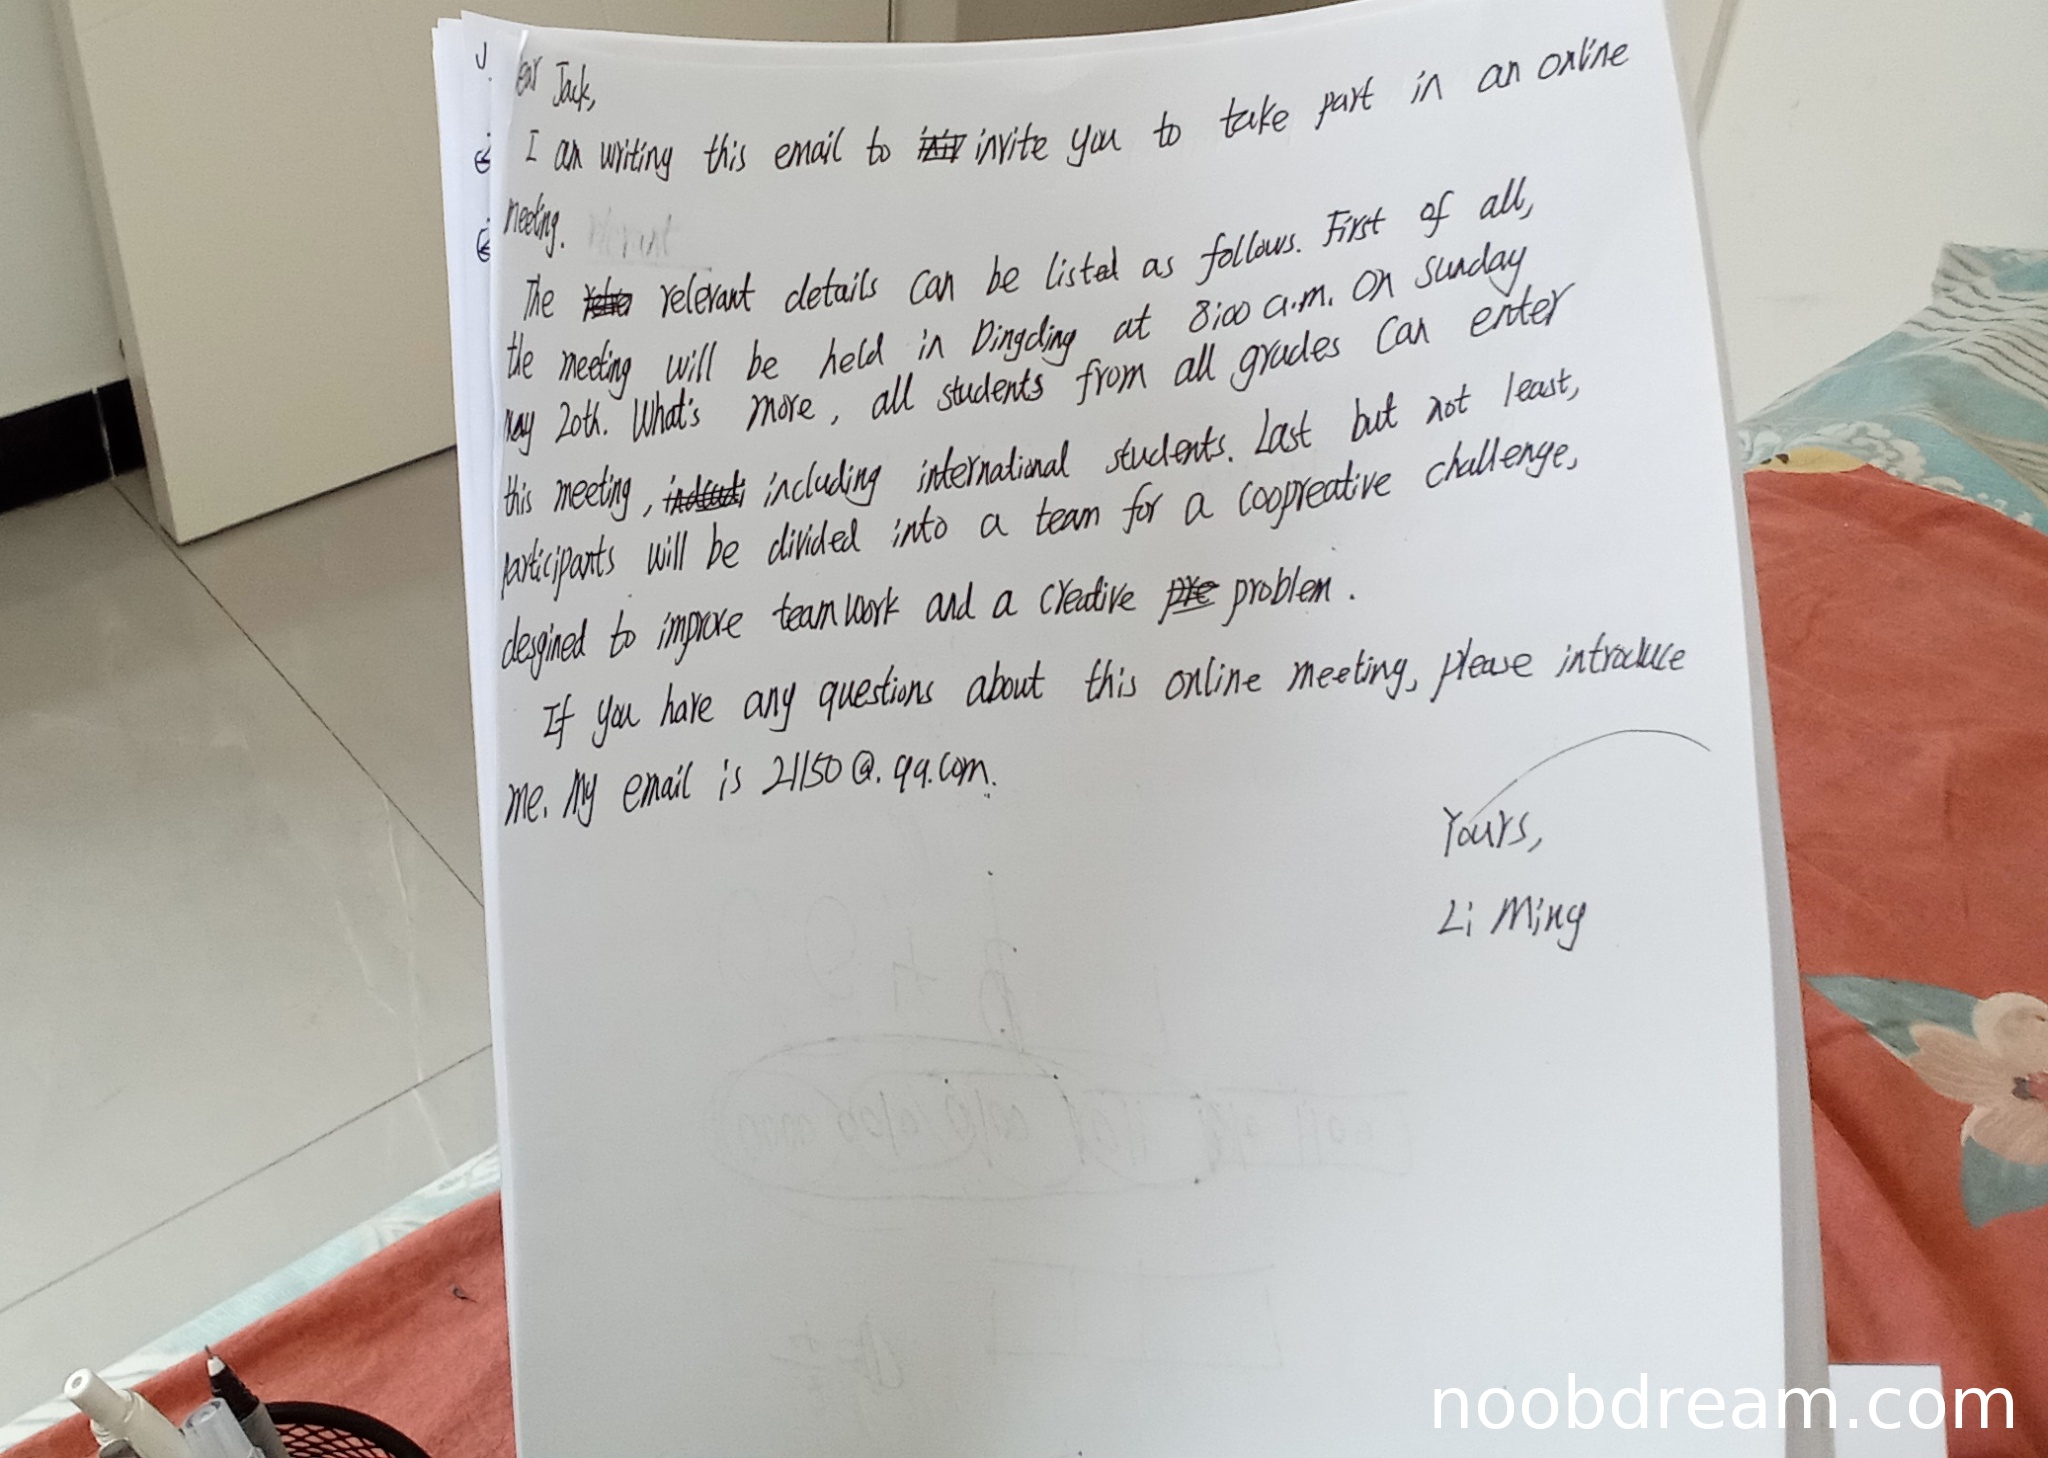 ear Jack,
I am writing this email to invite you to take part in an online
meeting.
The relevant details can be listed as follows. First of all,
the meeting will be held in Dingding at 8:00 a.m. on Sunday
May 20th. What's more, all students from all grades can enter
this meeting, including international students. Last but not least,
participants will be divided into a team for a coopreative challenge,
desgined to improve teamwork and a creative problem.
If you have any questions about this online meeting, please introduce
me. My email is 21150@.qq.com.
Yours,
Li Ming
noobdream.com